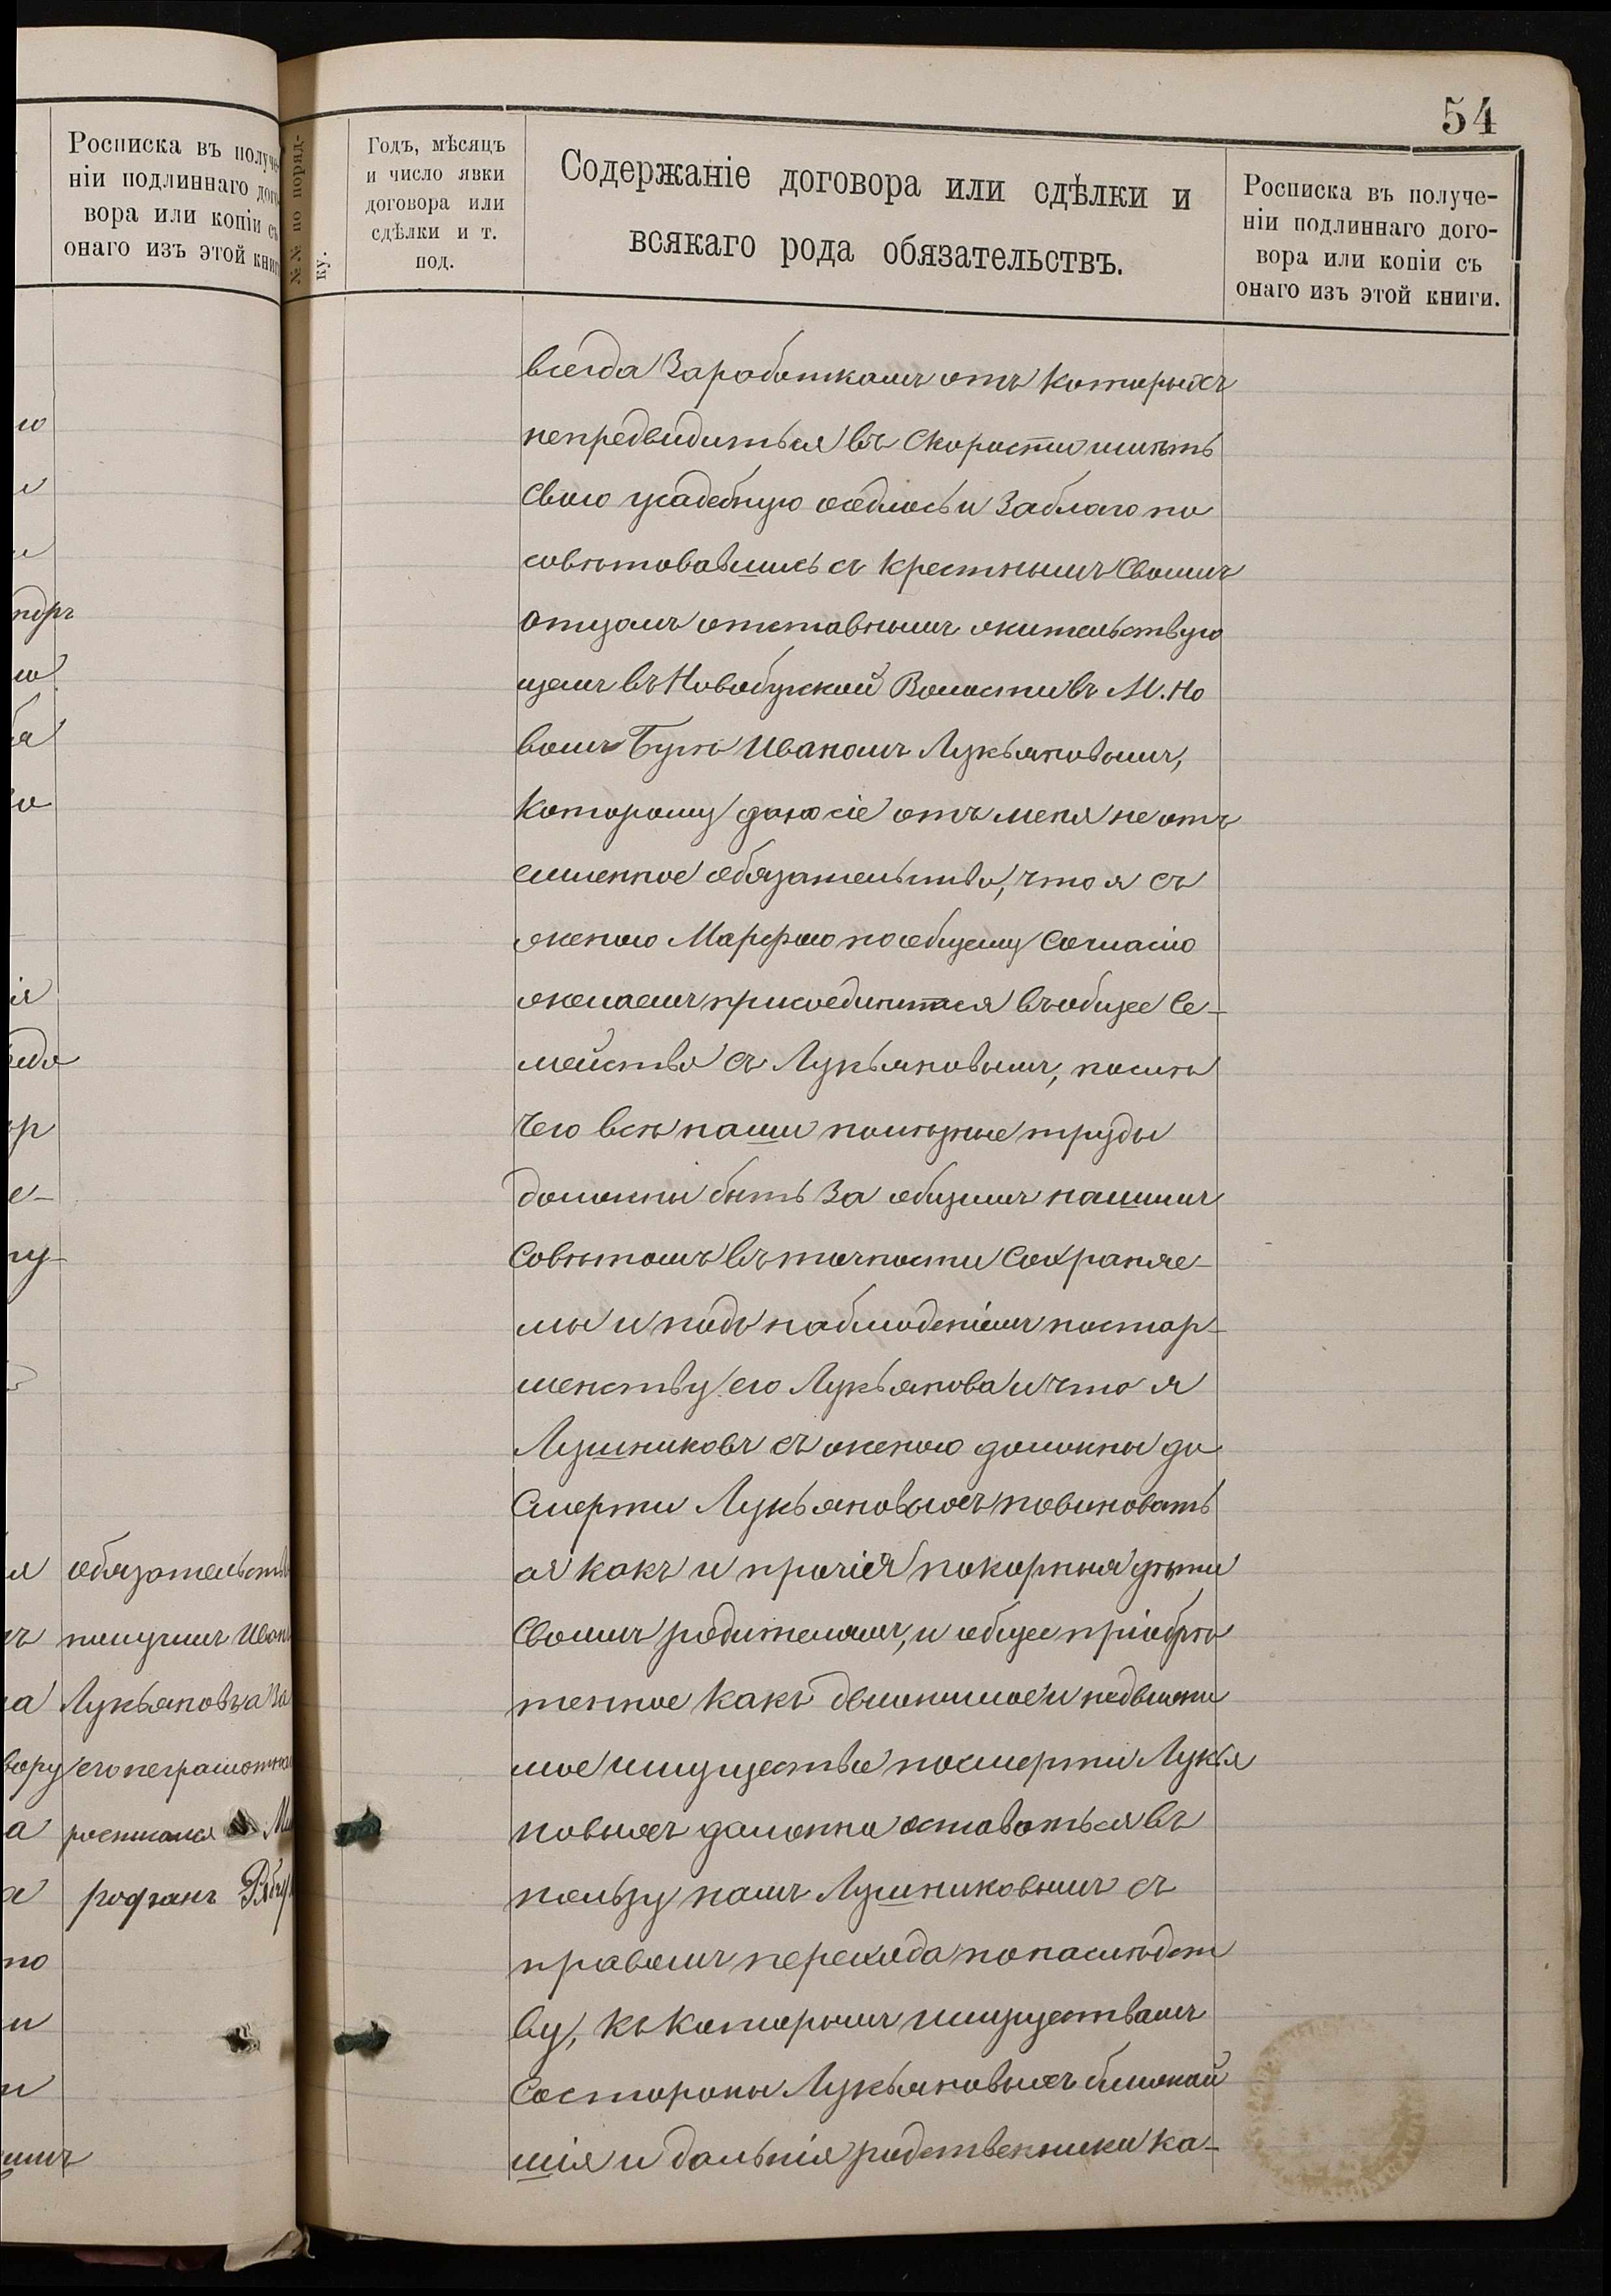 54
Росписка въ получе-
ніи подлиннаго дого
вора или копіи съ
онаго изъ этой книг
№№ по поряд-
ку.
Годъ, мѣсяцъ
и число явки
договора или
сдѣлки и т.
под.
Содержаніе договора или сдѣлки и
всякаго рода обязательствъ.
Росписка въ получе-
ніи подлиннаго дого-
вора или копіи съ
онаго изъ этой книги.
обязательств
получилъ Иван
Лукьяновъ а за
его неграмотн
росписался Ми
рофанъ
всегда Заработкамъ отъ которыхъ
непредвидиться въ Скорости имѣть
Свою усадебную оседлось и Заблаго по
совѣтовавшись съ Крестнымъ Своимъ
Отцомъ отставнымъ жительствую
щемъ въ Новобугской Волости въ М. Но
вомъ Бугѣ Иваномъ Лукьяновымъ,
Которому даю сіе отъ меня не отъ
емленное обязательство, что я съ
женою Марфою по общему Согласію
желаемъ присоединится въ общее Се-
мейство съ Лукьяновымъ, послѣ
Чего всѣ наши полѣзные труды
должни быть За общимъ нашимъ
Совѣтомъ въ точности Сохраняе-
мы и подъ наблюденіемъ по стар-
шенству его Лукьянова и что я
Лушниковъ съ женою должны до
Смерти Лукьяновыхъ повиновать
ся какъ и прочіея покорныя дѣти
Своимъ родителямъ, и общее пріобрѣ
тенное какъ движимое и недвижи
мое имущество по смерти Лукья
новыхъ должно оставаться въ
пользу намъ Лушниковымъ съ
правомъ перехода по наслѣдст
ву, къ которымъ имуществамъ
Состороны Лукьяновыхъ ближай
шія и дальнія родственники ка-